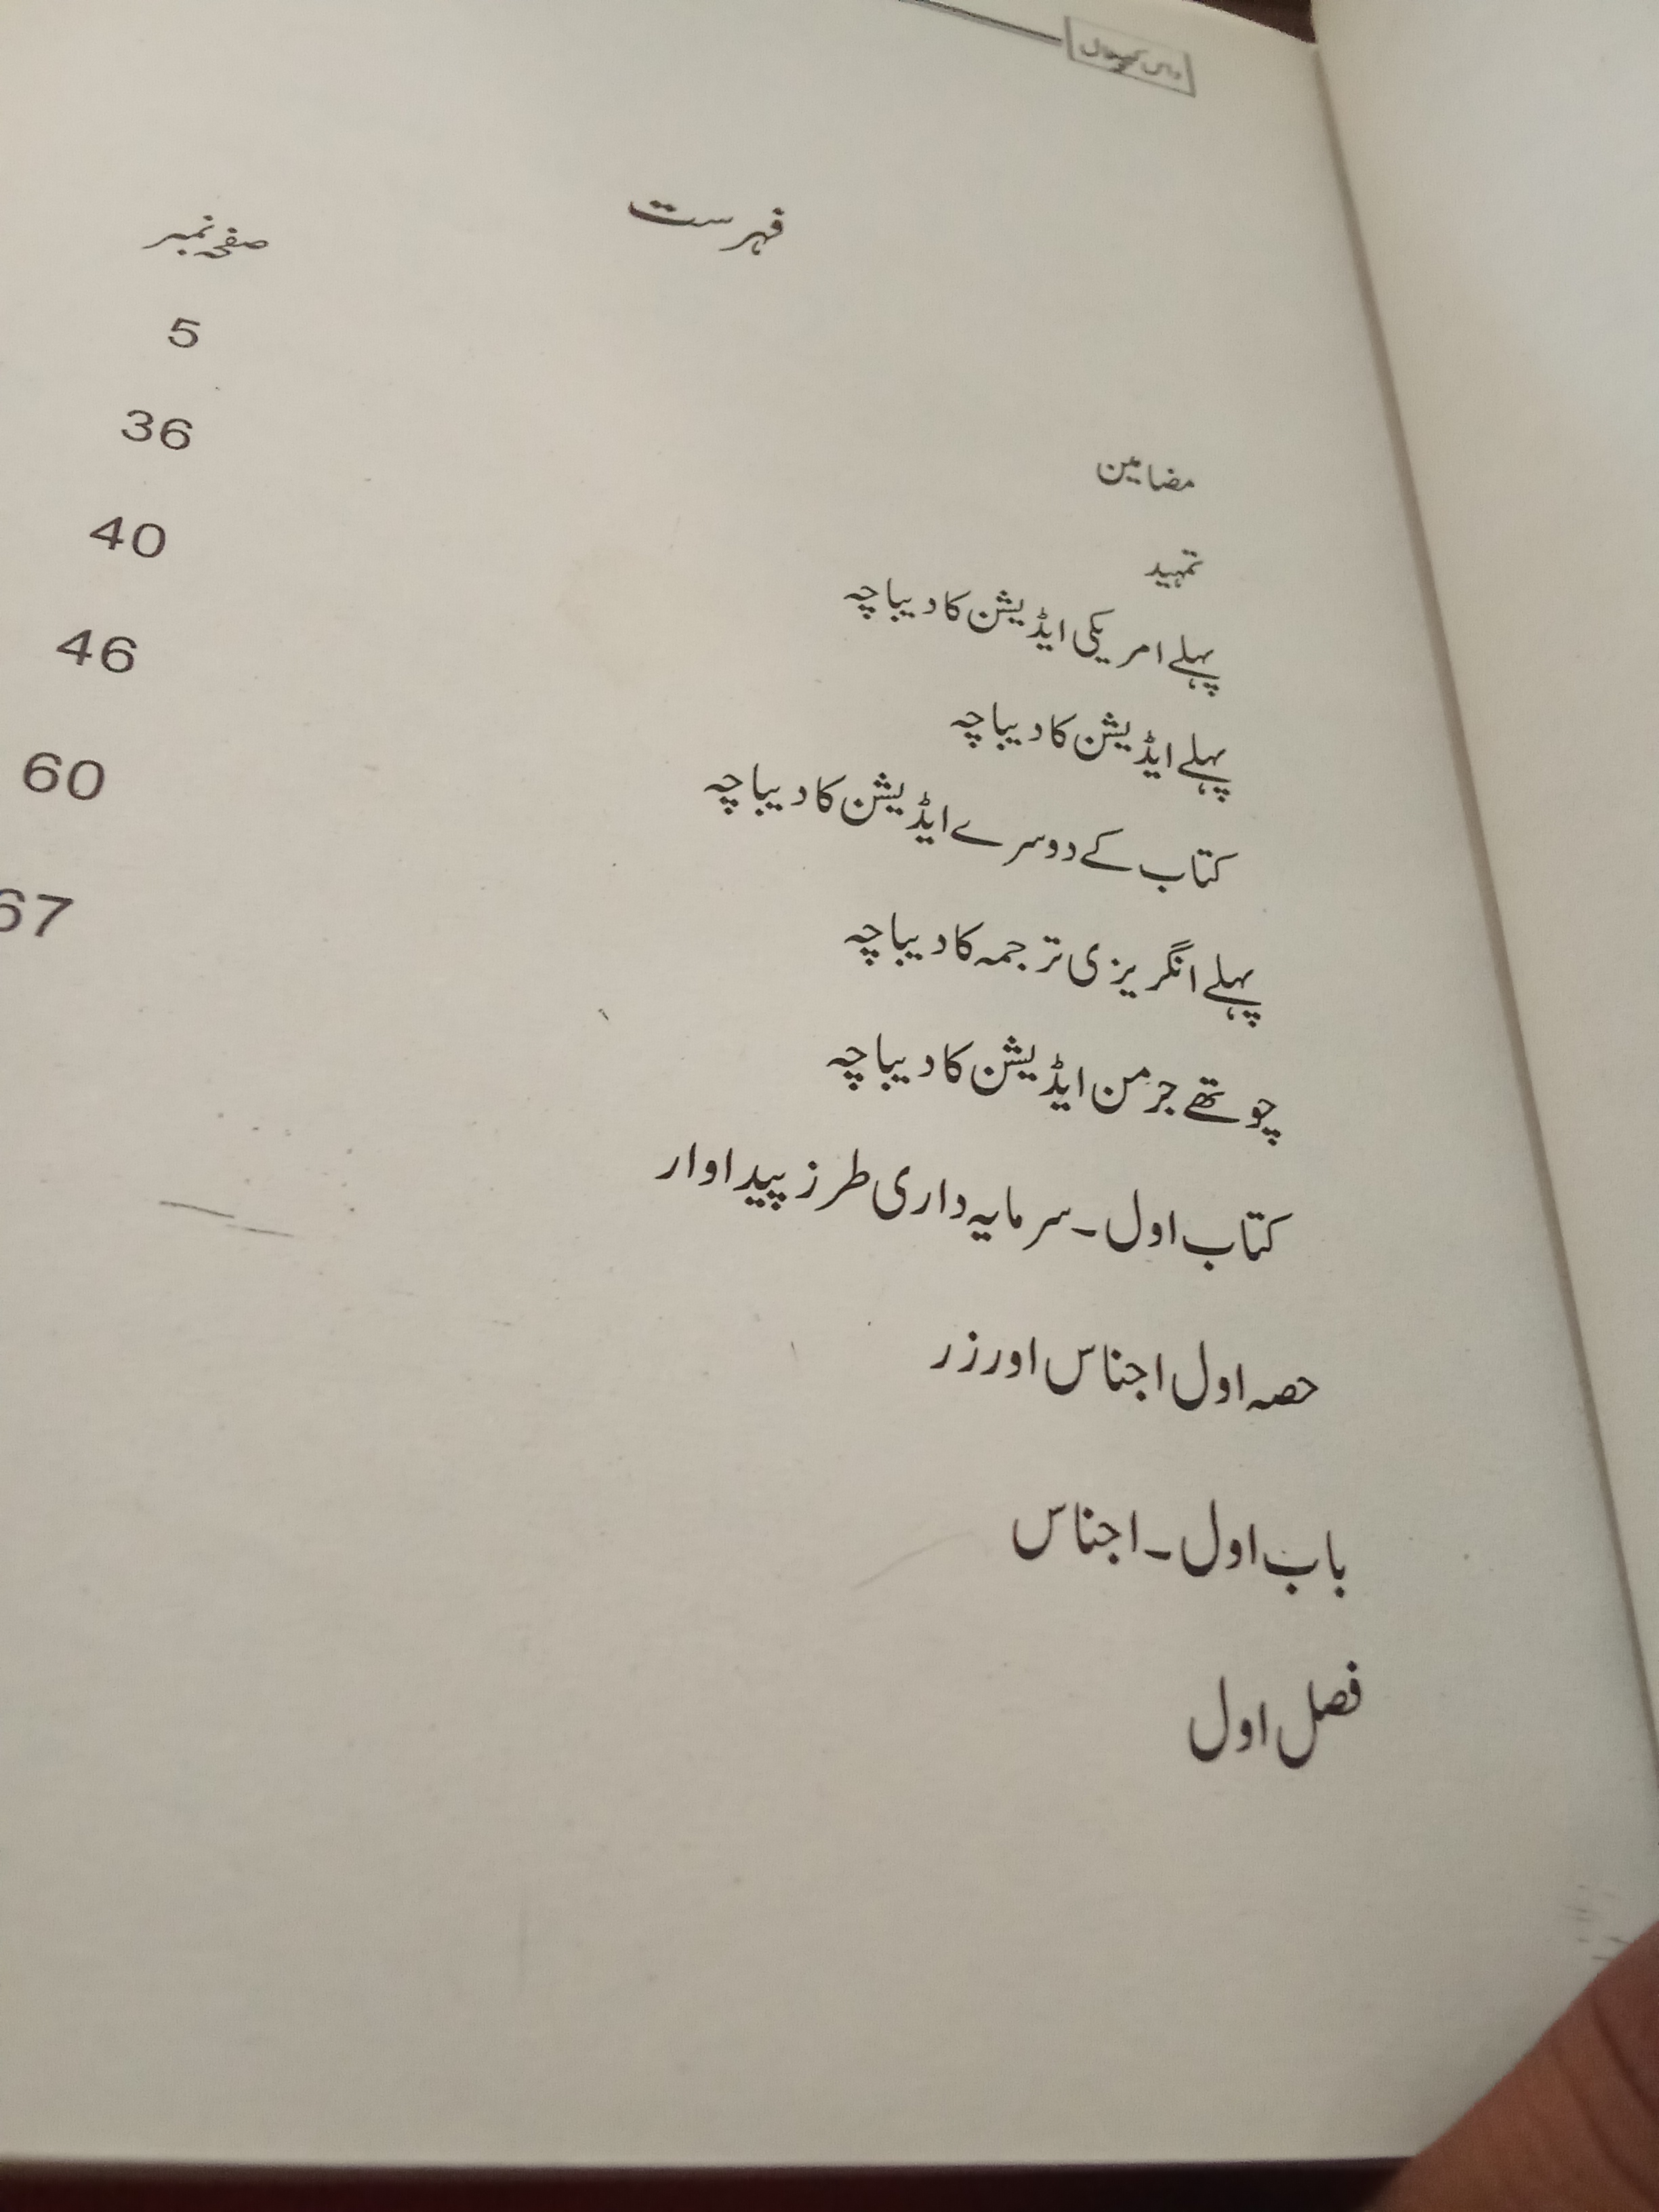 داس کیپٹال
فہرست
صفحہ نمبر
مضامین
5
تمہید
36
پہلے امریکی ایڈیشن کا دیباچہ
40
پہلے ایڈیشن کا دیباچہ
46
کتاب کے دوسرے ایڈیشن کا دیباچہ
60
پہلے انگریزی ترجمہ کا دیباچہ
67
چوتھے جرمن ایڈیشن کا دیباچہ
کتاب اول ۔ سرمایہ داری طرز پیداوار
حصہ اول اجناس اور زر
باب اول ۔ اجناس
فصل اول